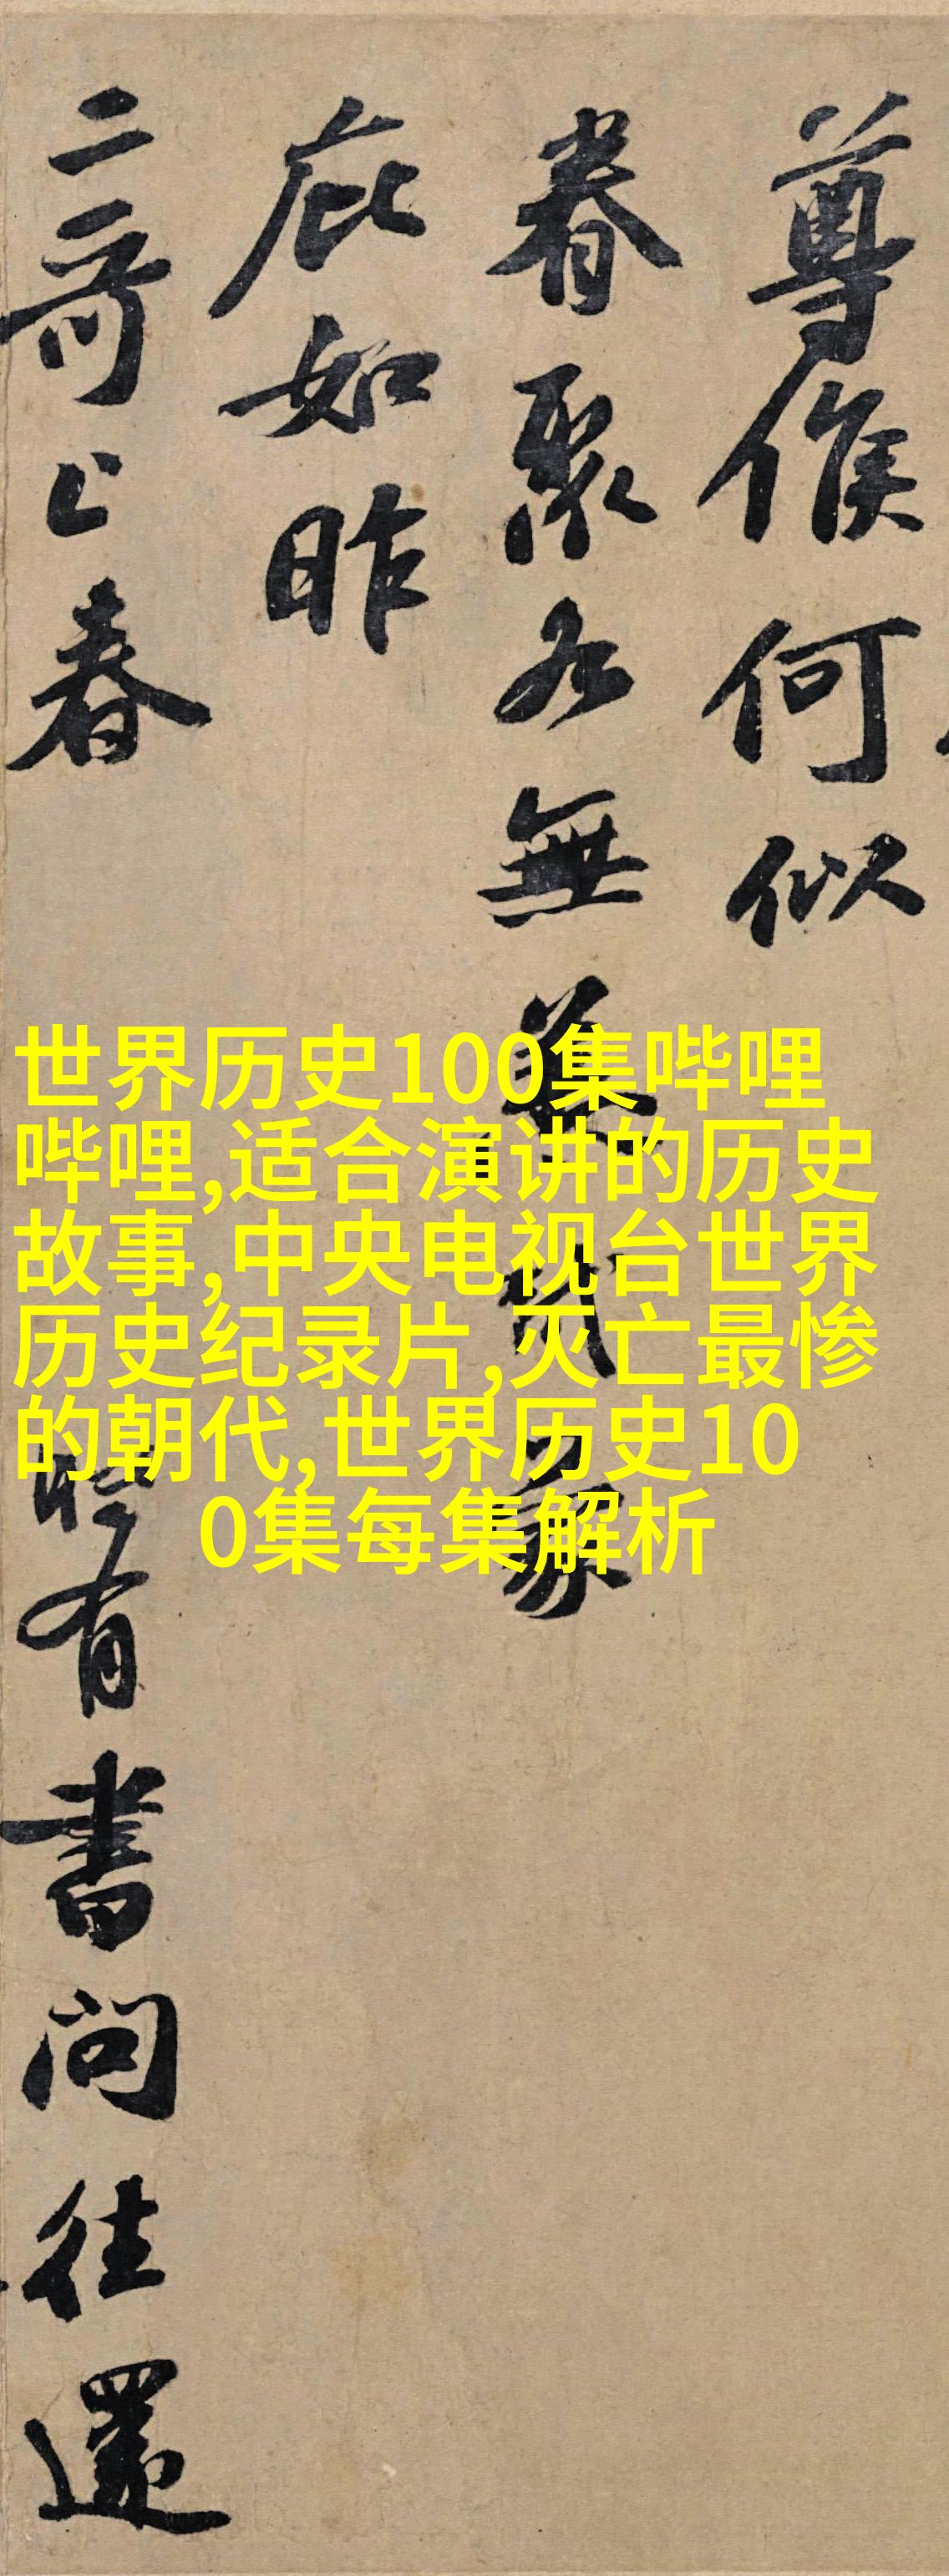 尊候何似
眷聚各無恙武蒙
庇如昨
二哥上春
時有書問往還
世界历史100集哔哩
哔哩,适合演讲的历史
故事,中央电视台世界
历史纪录片,灭亡最惨
的朝代,世界历史10
0集每集解析